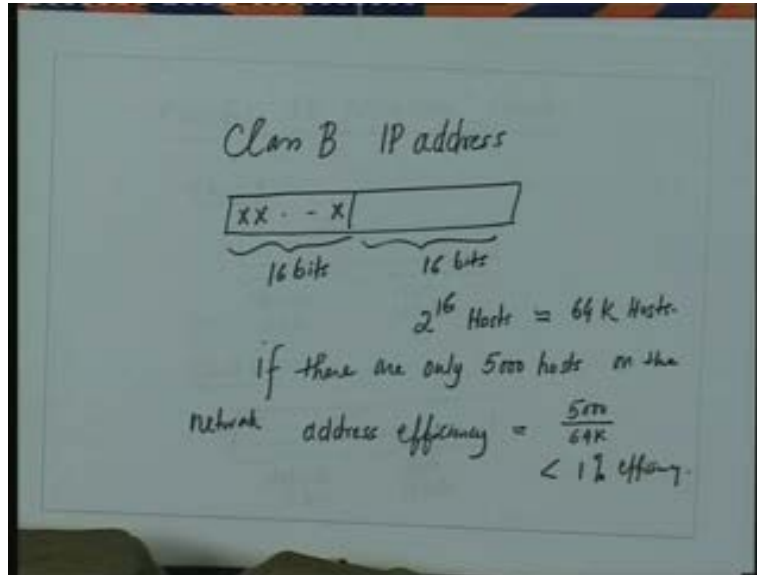 Class B IP address
XX . - X
16 bits 16 bits
2^16 Hosts = 64K Hosts.
if there are only 5000 hosts on the
network address efficiency = 5000/64K
< 1% efficiency.